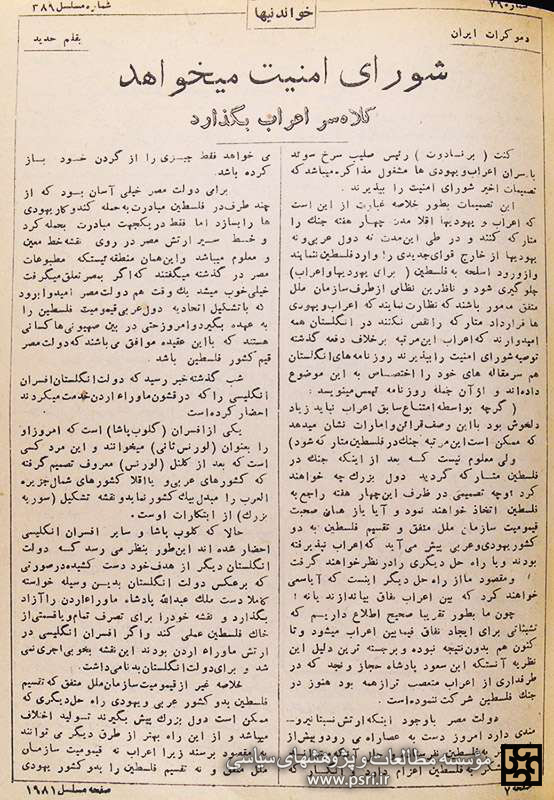 شماره مسلسل ۳۸۹
خواندنیها
شماره ۷۹
دموکرات ایران
بقلم حدید
شورای امنیت میخواهد
کلاه سر اعراب بگذارد
کنت ( برنادوت ) رئیس صلیب سرخ سوئد
با سران اعراب و یهودی ها مشغول مذاکره میباشد که
تصمیمات اخیر شورای امنیت را بپذیرند .
این تصمیمات بطور خلاصه عبارت از این است
که اعراب و یهودیها اقلا مدت چهار هفته جنك را
متارکه کنند و در طی این مدت نه دول عربی و نه
یهودیها از خارج قوای جدیدی را وارد فلسطین ننمایند
و از ورود اسلحه به فلسطین ( برای یهودیها و اعراب )
جلوگیری شود و ناظرین نظامی از طرف سازمان ملل
متفق مامور باشند که نظارت نمایند که اعراب و یهودی
ها قرارداد متارکه را نقض نکنند در انگلستان همه
امیدوارند که اعراب این مرتبه برخلاف دفعه گذشته
توصیه شورای امنیت را بپذیرند روزنامه های انگلستان
هم سرمقاله های خود را اختصاص به این موضوع
داده اند و از آن جمله روزنامه تیمس مینویسد :
( گرچه بواسطه امتناع سابق اعراب نباید زیاد
دلخوش بود با این وصف قرائن و امارات نشان میدهد
که ممکن است این مرتبه جنك در فلسطین متارکه شود )
ولی معلوم نیست که بعد از اینکه جنك در
فلسطین متارکه گردید دول بزرك چه خواهند
کرد ؟ و چه تصمیمی در ظرف این چهار هفته راجع به
فلسطین اتخاذ خواهند نمود و آیا باز همان صحبت
قیمومیت سازمان ملل متفق و تقسیم فلسطین به دو
کشور یهودی و عربی پیش می آید که اعراب نپذیرفته
بودند و یا راه حل دیگری را در نظر خواهند گرفت
و مقصود ما از راه حل دیگر اینست که آیا سعی
خواهند کرد که بین اعراب نفاق بیاندازند یا نه !
چون ما بطور تقریبا صحیح اطلاع داریم که
تشبثاتی برای ایجاد نفاق فیمابین اعراب میشود و تا
کنون هم بدون نتیجه نبوده و برجسته ترین دلیل این
نظریه آنستکه ابن سعود پادشاه حجاز و نجد که در
طرفداری از اعراب متعصب تر از همه بود هنوز در
جنك فلسطین شرکت ننموده است .
دولت مصر باوجود اینکه ارتش نسبتا نیرو-
مندی دارد امروز دست به عصا راه می رود و بیش از
به فلسطین
به فلسطین اعزام دارد
می خواهد فقط چیزی را از گردن خود باز
کرده باشد.
برای دولت مصر خیلی آسان بود که از
چند طرف در فلسطین مبادرت به حمله کند و کار یهودی
ها را بسازد اما فقط در یکجهت مبادرت بحمله کرد
و خط سیر ارتش مصر در روی نقشه خط معین
و معلوم میباشد و این همان منطقه ئیستکه مطبوعات
مصر در گذشته میگفتند که اگر بمصر تعلق میگرفت
خیلی خوب میشد یك وقت هم دولت مصر امیدوار بود
که با تشکیل اتحادیه دول عربی قیمومیت فلسطین را
به عهده بگیرد و امروز حتی در بین صهیونی ها کسانی
هستند که با این عقیده موافق می باشند که دولت مصر
قیم کشور فلسطین باشد .
شب گذشته خبر رسید که دولت انگلستان افسران
انگلیسی را که در قشون ماوراء اردن خدمت میکردند
احضار کرده است
یکی از افسران ( گلوب پاشا ) است که امروز او
را بعنوان ( لورنس ثانی ) میخوانند و این مرد کسی
است که بعد از کلنل ( لورنس ) معروف تصمیم گرفته
که کشورهای عربی و یا اقلا کشورهای شمال جزیره
العرب را مبدل بیك کشور نماید و نقشه تشکیل ( سوریه
بزرك ) از ابتکارات اوست .
حالا که گلوب پاشا و سایر افسران انگلیسی
احضار شده اند این طور بنظر می رسد که دولت
انگلستان دیگر از هدف خود دست کشیده در صورتی
که برعکس دولت انگلستان بدین وسیله خواسته
کاملا دست ملك عبدالله پادشاه ماوراء اردن را آزاد
بگذارد و نقشه خود را برای تصرف تمام و یا قسمتی از
خاك فلسطین عملی کند و اگر افسران انگلیسی در
ارتش ماوراء اردن بودند این نقشه بخوبی اجری نمی
شد و برای دولت انگلستان بدنامی داشت .
خلاصه غیر از قیمومیت سازمان ملل متفق که تقسیم
فلسطین بدو کشور عربی و یهودی راه حل دیگری که
ممکن است دول بزرك پیش بگیرند تولید اختلاف
میباشد و از این راه بهتر از هر طرق دیگر می توانند
به مقصود برسند زیرا اعراب نه قیمومیت سازمان
ملل متفق و نه تقسیم فلسطین را بدو کشور یهودی
موسسه مطالعات و پژوهشهای سیاسی
www.psri.ir
صفحه ۷
صفحه مسلسل ۱۹۸۱